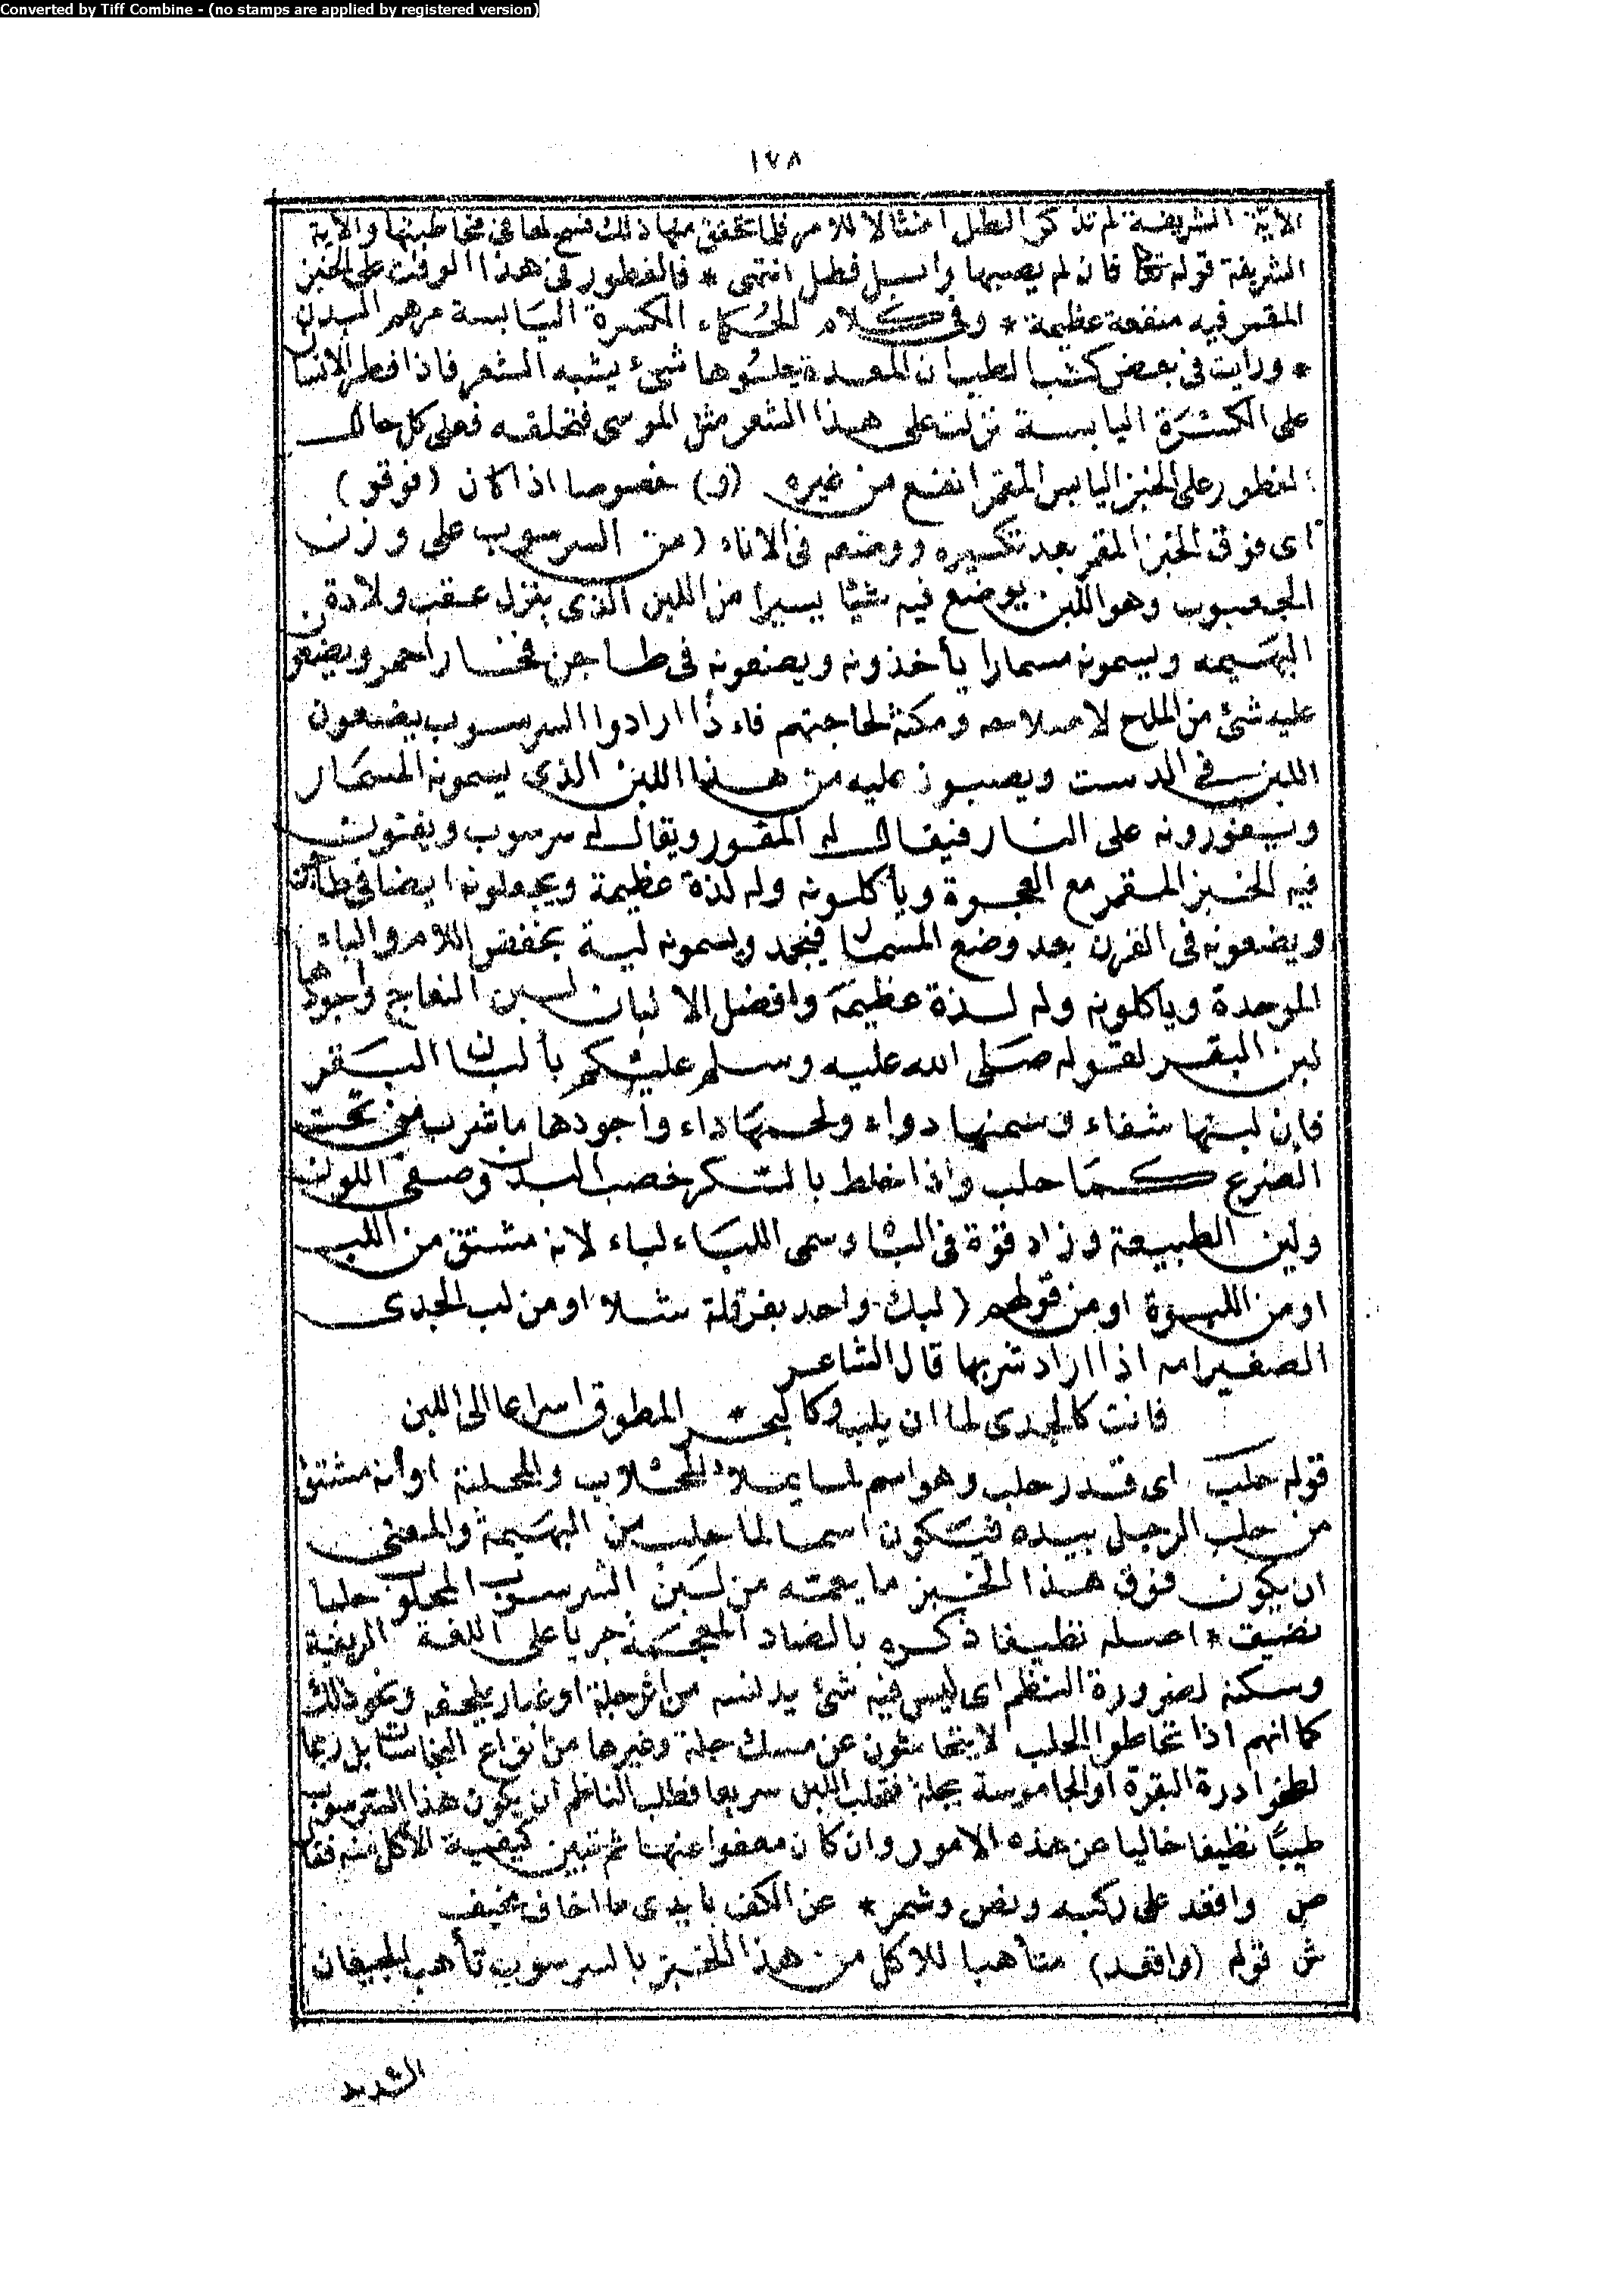 Converted by Tiff Combine - (no stamps are applied by registered version)
١٧٨
الآية الشريفة لم تذكر الطل امتثالا للامر فلما تحقق منها ذلك فسح لها فى مخاطبتها والآية
الشريفة قوله تعالى فان لم يصبها وابل فطل انتهى * فالفطور فى هذا الوقت على الخبز
المقمر فيه منفعة عظيمة * وفى كلام الحكماء الكسرة اليابسة مرهم البدن
* ورايت فى بعض كتب الطب ان المعدة يعلوها شىء يشبه الشعر فاذا افطر الانسان
على الكسرة اليابسة نزلت على هذا الشعر مثل الموسى فتحلقه فعلى كل حال
الفطور على الخبز اليابس المقمر انفع من غيره (و) خصوصا اذا كان (فوقو)
اى فوق الخبز المقمر بعد تكسيره ووضعه فى الاناء (من السرسوب على وزن
الجعبوب وهو اللبن يوضع فيه شيئا يسيرا من اللبن الذى ينزل عقب ولادة
البهيمه ويسمونه مسمارا يأخذونه ويصنعونه فى طاجن فخار احمر ويضعون
عليه شئ من الملح لاصلاحه ومكنة لحاجتهم فاءذا ارادوا السرسوب يضعون
اللبن فى الدست ويصبون عليه من هذا اللبن الذى يسمونه المسمار
ويفورونه على النار فيقال له المفور ويقال له سرسوب ويفتون
فيه الخبز المقمر مع العجوة ويأكلونه وله لذة عظيمة ويجعلونه ايضا فى طاجن
ويضعونه فى الفرن بعد وضع المسمار فيجمد ويسمونه لبة بخفض اللام والباء
الموحدة وياكلونه وله لذة عظيمة وافضل الالبان لبن النعاج واجودها
لبن البقر لقوله صلى الله عليه وسلم عليكم بألبان البقر
فإن لبنها شفاء وسمنها دواء ولحمها داء واجودها ما شرب من تحت
الضرع كما حلب واذا خلط بالسكر خصب البدن وصفى اللون
ولين الطبيعة وزاد قوة فى الباه وسمى اللباء لباء لانه مشتق من اللب
او من اللبوة او من قولهم (لبك واحد بفرقلة مثلا او من لب الجدى
الصغير امه اذا اراد شربها قال الشاعر
فانت كالجدى لما ان يلب وكا * لبحر المطوق اسراعا الى اللبن
قوله حلب اى قدر حلب وهو اسم لما يملاء المحلاب والمحلبة او انه مشتق
من حلب الرجل بيده فيكون اسما لما حلب من البهيمة والمعنى
ان يكون فوق هذا الخبز ما يعمه من لبن السرسوب المحلوب حلبا
نضيف * اصله نظيفا ذكره بالضاد المعجمة جريا على اللغة الريفية
وسكنه لضرورة النظم اى ليس فيه شئ يدنسه من اثر جلة او غبار يلحقه ونحو ذلك
كما انهم اذا تخاطوا الحلب لا يتحاشون عن مسك جلة وغيرها من انواع النجاسات بل ربما
لطخوا درة البقرة او الجاموسة بجلة فتحلب اللبن سريعا فطلب الناظم ان يكون هذا السرسوب
طيبا نظيفا خاليا عن هذه الامور وان كان معفوا عنها ثم تبين كيفية الاكل منه فقال
ص واقعد على ركبه ونص وشمر * عن الكف بايدى ما اخاف مخيف
ش قوله (واقعد) متأهبا للاكل من هذا الخبز بالسرسوب تأهب الجيعان
الشديد